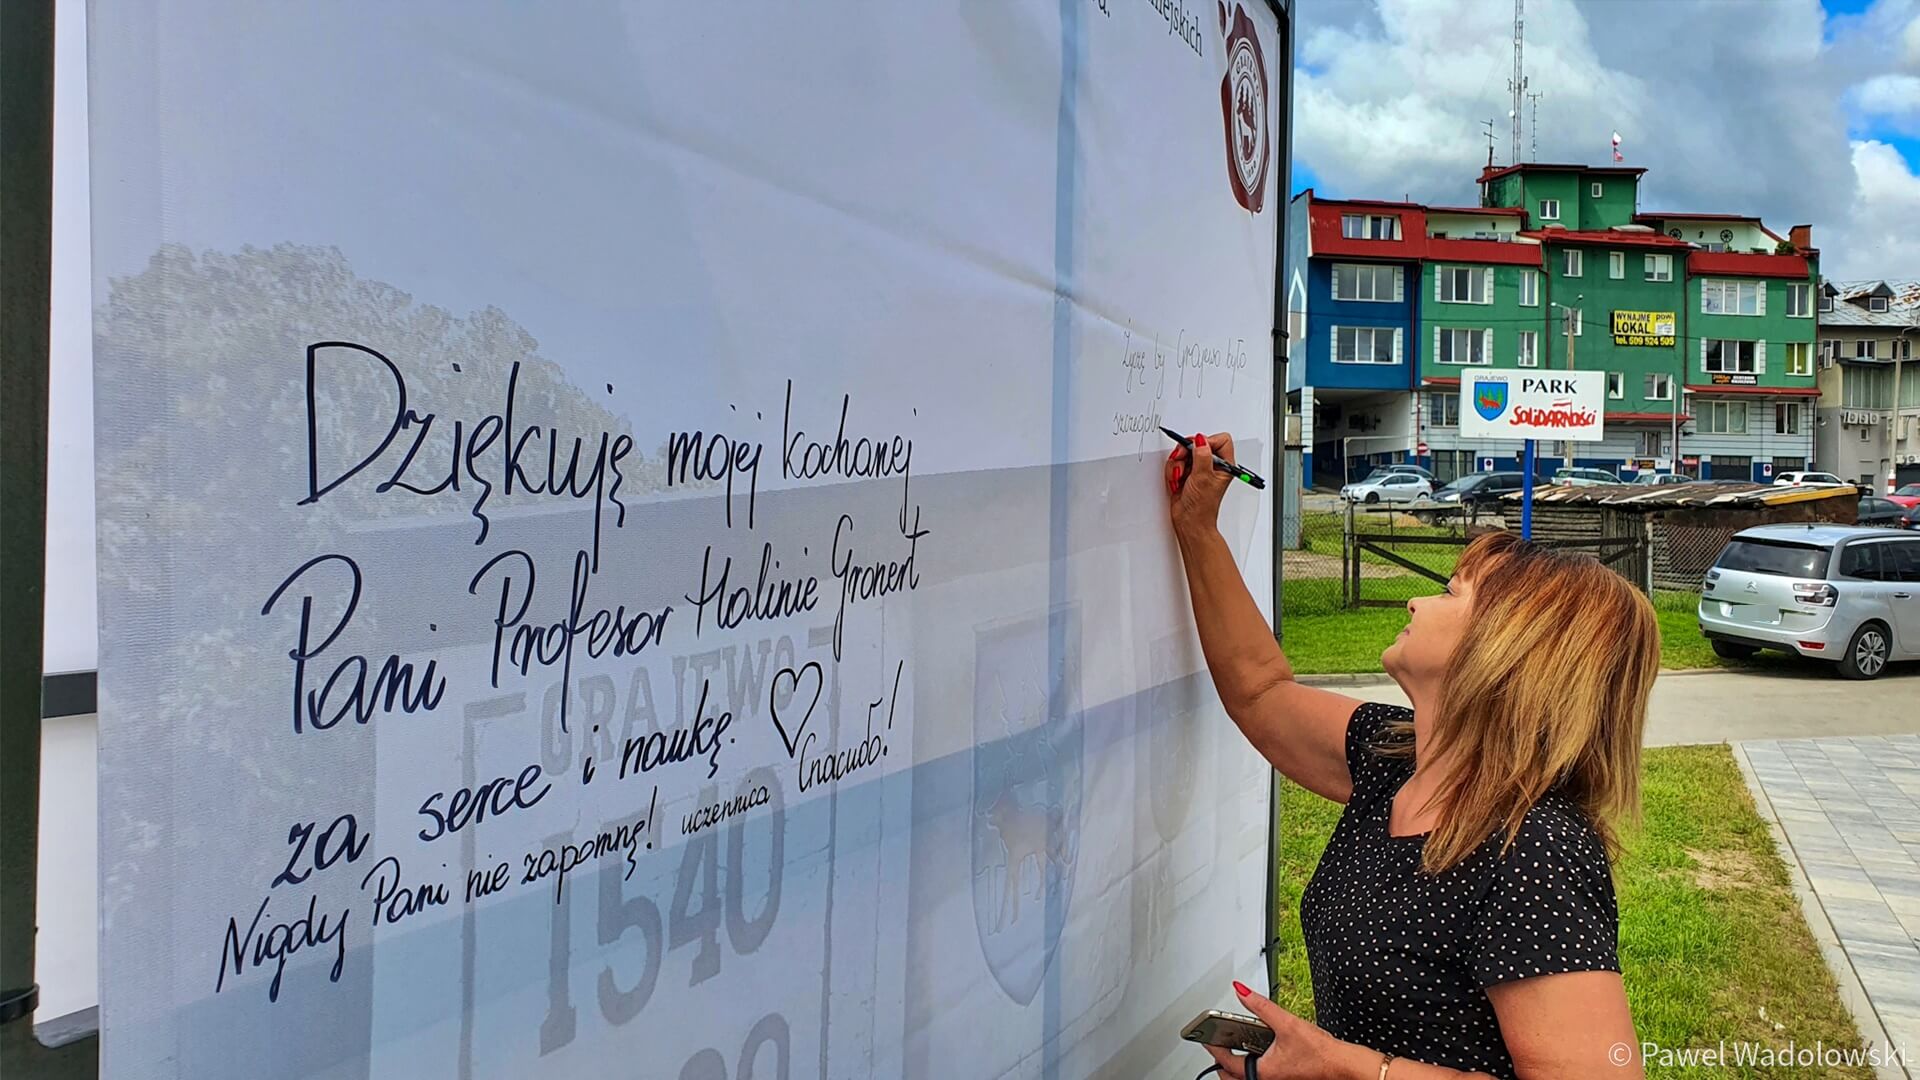 miejskich
GRAJEWO
1540
Dziękuję mojej kochanej
Pani Profesor Halinie Gronert
za serce i naukę. ♡
Nigdy Pani nie zapomnę! uczennica Спасибо!
GRAJEWO
1540
Życzę by Grajewo było
szczególn
WYNAJMĘ pow.
LOKAL
tel. 509 524 505
GRAJEWO
PARK
SOLIDARNOŚCI
© Pawel Wadolowski